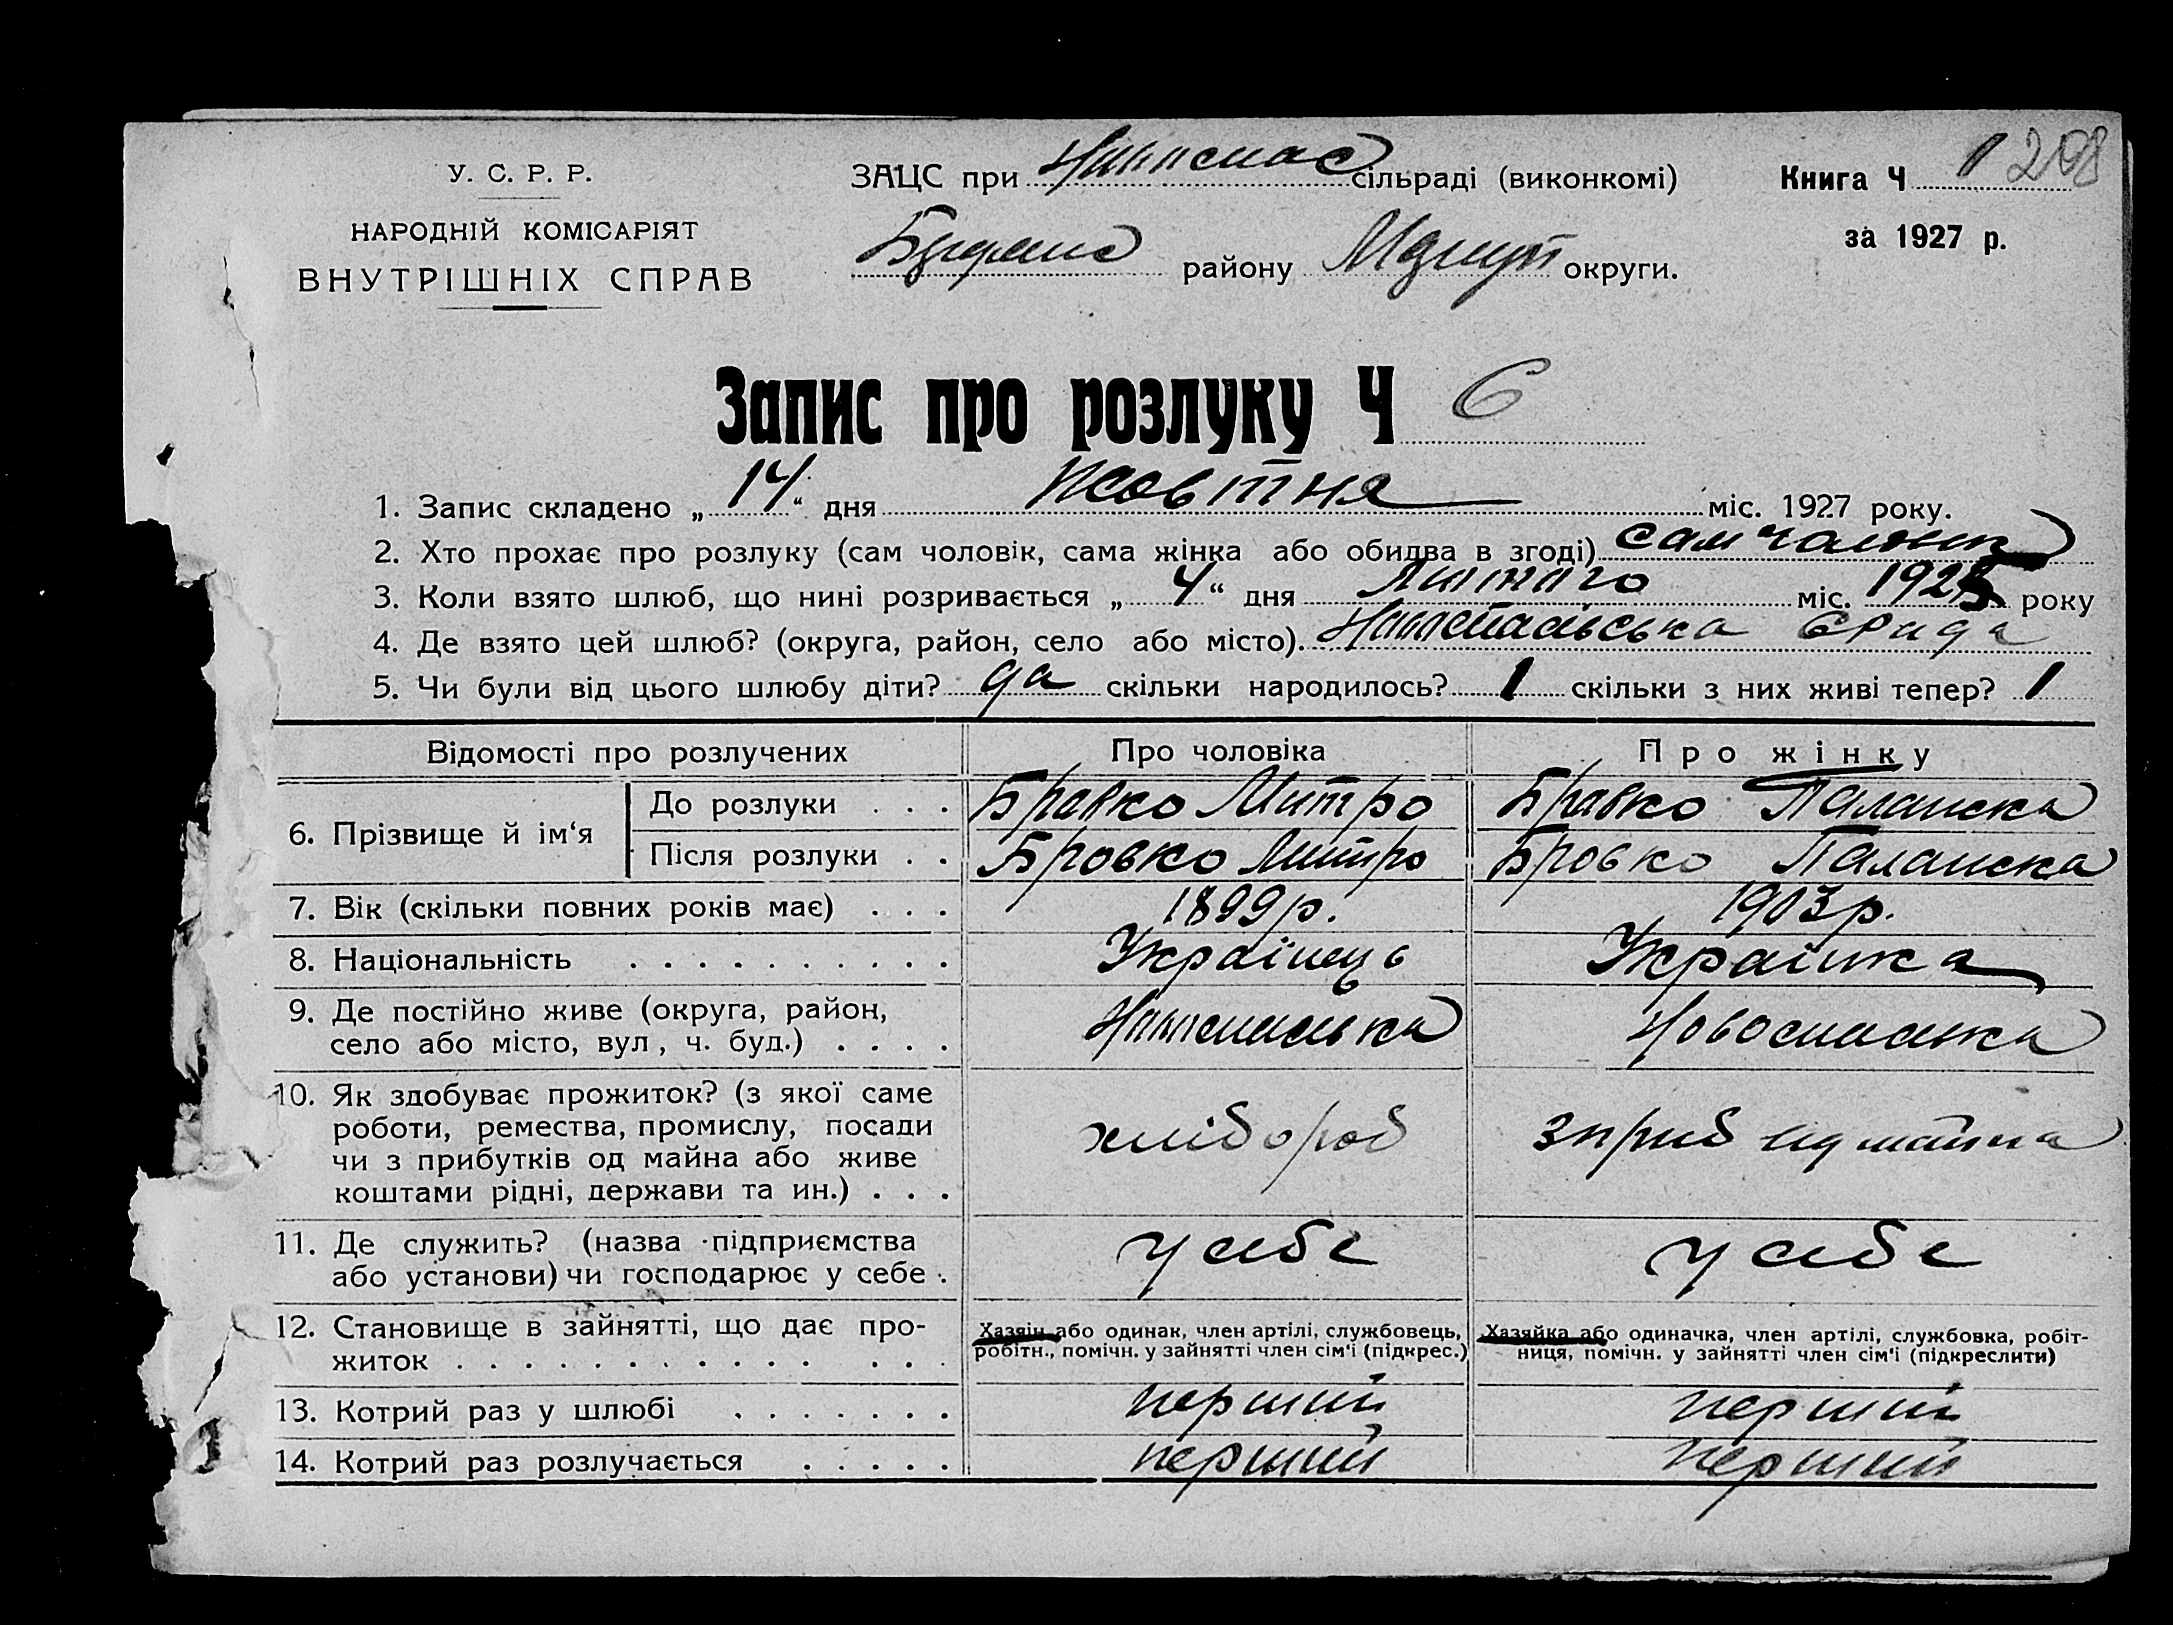 У. С. Р. Р.
НАРОДНІЙ КОМІСАРІЯТ
ВНУТРІШНІХ СПРАВ
ЗАЦС при сільраді (виконкомі)
району округи.
Книга Ч 1 208
за 1927 р.
Запис про розлуку Ч 6
1. Запис складено „ 14 “ дня жовтня міс. 1927 року.
2. Хто прохає про розлуку (сам чоловік, сама жінка або обидва в згоді) сам чоловік
3. Коли взято шлюб, що нині розривається „ 4 “ дня Лютого міс. 1925 року
4. Де взято цей шлюб? (округа, район, село або місто).
5. Чи були від цього шлюбу діти? да скільки народилось? 1 скільки з них живі тепер? 1
Відомості про розлучених Про чоловіка Про жінку
6. Прізвище й ім‘я До розлуки . . . Бровко Митро Бровко Палашка
Після розлуки . . Бровко Митро Бровко Палашка
7. Вік (скільки повних років має) . . . 1899 р. 1903 р.
8. Національність . . . . . . . . . . Українець Українка
9. Де постійно живе (округа, район,
село або місто, вул, ч. буд.) . . . . Новоспаська
10. Як здобуває прожиток? (з якої саме
роботи, ремества, промислу, посади
чи з прибутків од майна або живе
коштами рідні, держави та ин.) . . . хлібороб з приб від майна
11. Де служить? (назва підприємства
або установи) чи господарює у себе . у себе у себе
12. Становище в зайнятті, що дає про-
житок . . . . . . . . . . . . . .
Хазяїн або одинак, член артілі, службовець,
робітн., помічн. у зайнятті член сім'ї (підкрес.)
Хазяйка або одиначка, член артілі, службовка, робіт-
ниця, помічн. у зайнятті член сім'ї (підкреслити)
13. Котрий раз у шлюбі . . . . . . . перший перший
14. Котрий раз розлучається . . . . . перший перший